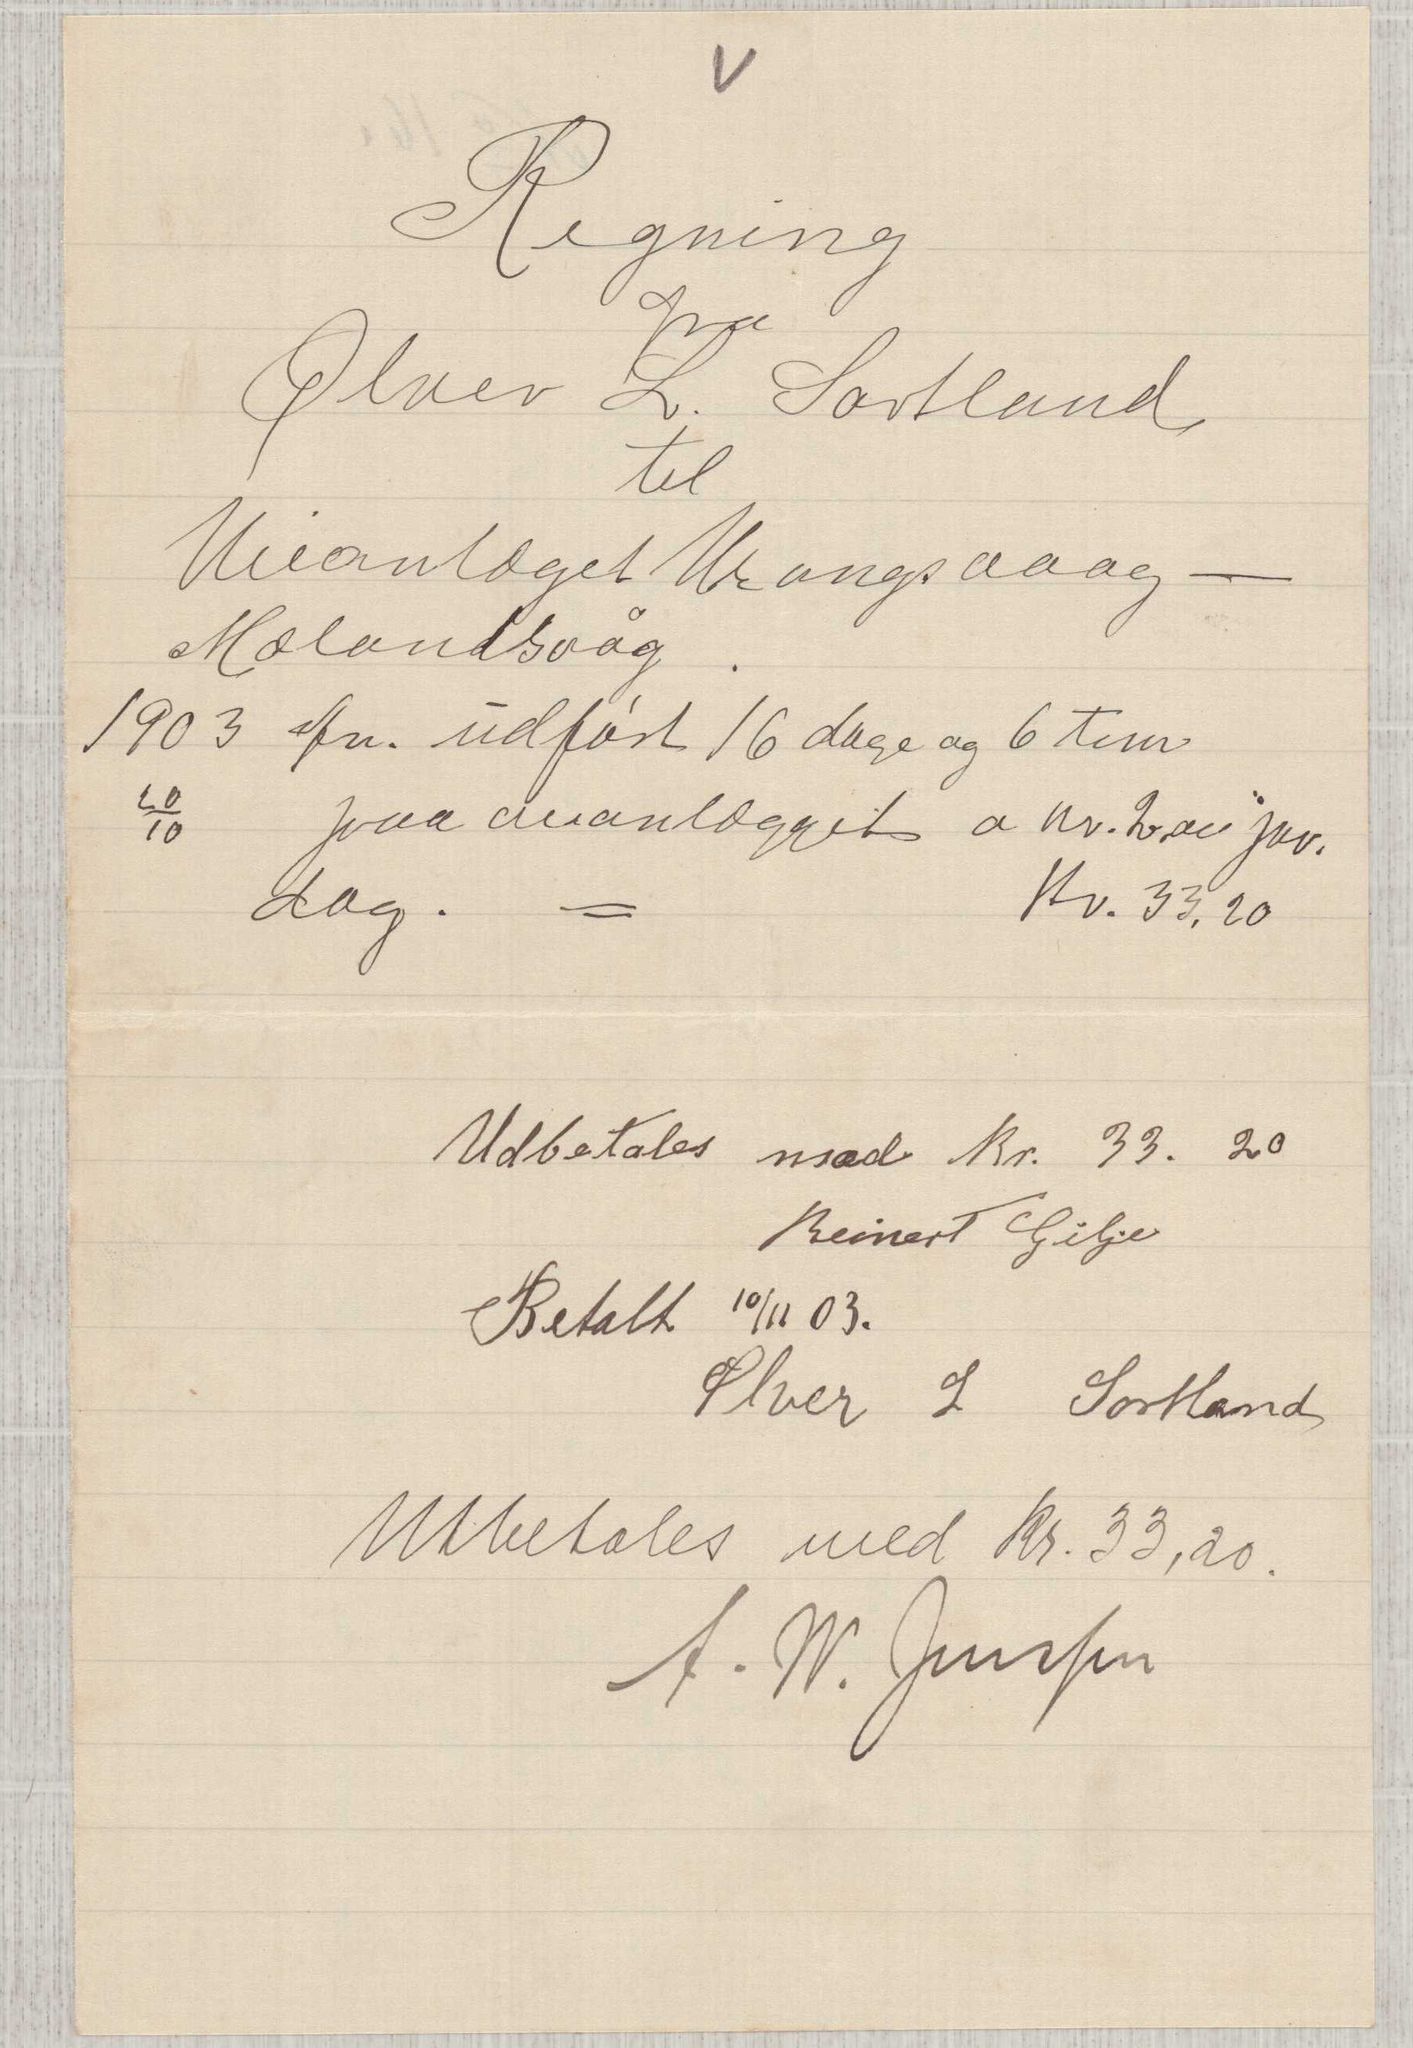 V
Regning
fra
Ølver L. Sortland
til
Veianlæget Vrangsvaag —
Mælandsvåg.
1903 for udført 16 dage og 6 tim
20/10 paa veianlægget a kr. 2,00 pr.
dag. = Kr. 33,20
Udbetales med Kr. 33. 20
Reinert Gilje
Betalt 10/11 03.
Ølver L Sortland
Utbetales med Kr. 33,20.
A. W. Jensen